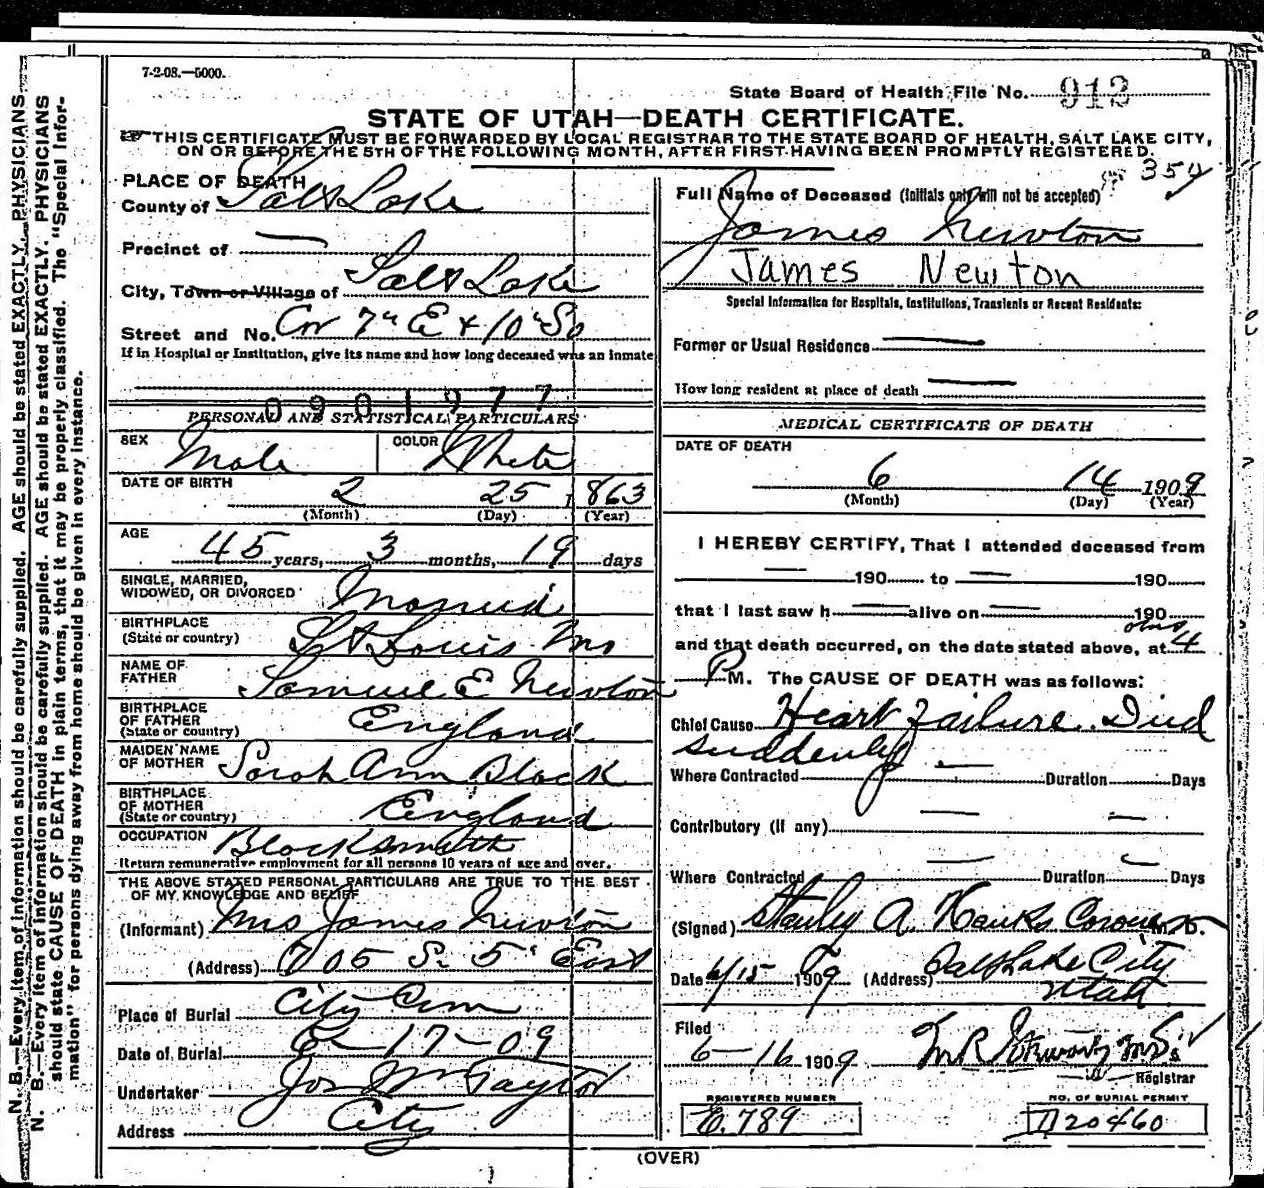 7-2-08.—5000.
State Board of Health File No. 913
STATE OF UTAH—DEATH CERTIFICATE.
THIS CERTIFICATE MUST BE FORWARDED BY LOCAL REGISTRAR TO THE STATE BOARD OF HEALTH, SALT LAKE CITY,
ON OR BEFORE THE 5TH OF THE FOLLOWING MONTH, AFTER FIRST HAVING BEEN PROMPTLY REGISTERED.
354
PLACE OF DEATH
County of Salt Lake
Precinct of —
City, Town or Village of Salt Lake
Street and No. Cor 7" E & 10" So
If in Hospital or Institution, give its name and how long deceased was an inmate
0901977
PERSONAL AND STATISTICAL PARTICULARS
SEX Male COLOR White
DATE OF BIRTH 2 25 1863
(Month) (Day) (Year)
AGE 45 years, 3 months, 19 days
SINGLE, MARRIED,
WIDOWED, OR DIVORCED Married
BIRTHPLACE
(State or country) St Louis Mo
NAME OF
FATHER Samuel E Newton
BIRTHPLACE
OF FATHER
(State or country) England
MAIDEN NAME
OF MOTHER Sarah Ann Black
BIRTHPLACE
OF MOTHER
(State or country) England
OCCUPATION Blacksmith
Return remunerative employment for all persons 10 years of age and over.
THE ABOVE STATED PERSONAL PARTICULARS ARE TRUE TO THE BEST
OF MY KNOWLEDGE AND BELIEF
(Informant) Mrs James Newton
(Address) 705 S. 5" East
Place of Burial City Cem
Date of Burial 6-17-09
Undertaker Jos Wm Taylor
Address City
Full Name of Deceased (Initials only will not be accepted)
James Newton
James Newton
Special Information for Hospitals, Institutions, Transients or Recent Residents:
Former or Usual Residence —
How long resident at place of death —
MEDICAL CERTIFICATE OF DEATH
DATE OF DEATH
6 14 1909
(Month) (Day) (Year)
I HEREBY CERTIFY, That I attended deceased from
— 190 to — 190
that I last saw h — alive on — 190
and that death occurred, on the date stated above, at 4
P M. The CAUSE OF DEATH was as follows:
Chief Cause Heart failure. Died
suddenly
Where Contracted — Duration Days
Contributory (if any) — —
Where Contracted — Duration — Days
(Signed) Stanley A. Hanks Coroner M. D.
Date 6/15 1909 (Address) Salt Lake City
Utah
Filed
6-16 1909
Registrar
REGISTERED NUMBER
E. 789
NO. OF BURIAL PERMIT
D 20460
(OVER)
N. B.—Every item of information should be carefully supplied. AGE should be stated EXACTLY. PHYSICIANS
N. B.—Every item of information should be carefully supplied. AGE should be stated EXACTLY. PHYSICIANS
should state CAUSE OF DEATH in plain terms, that it may be properly classified. The "Special Infor-
mation" for persons dying away from home should be given in every instance.